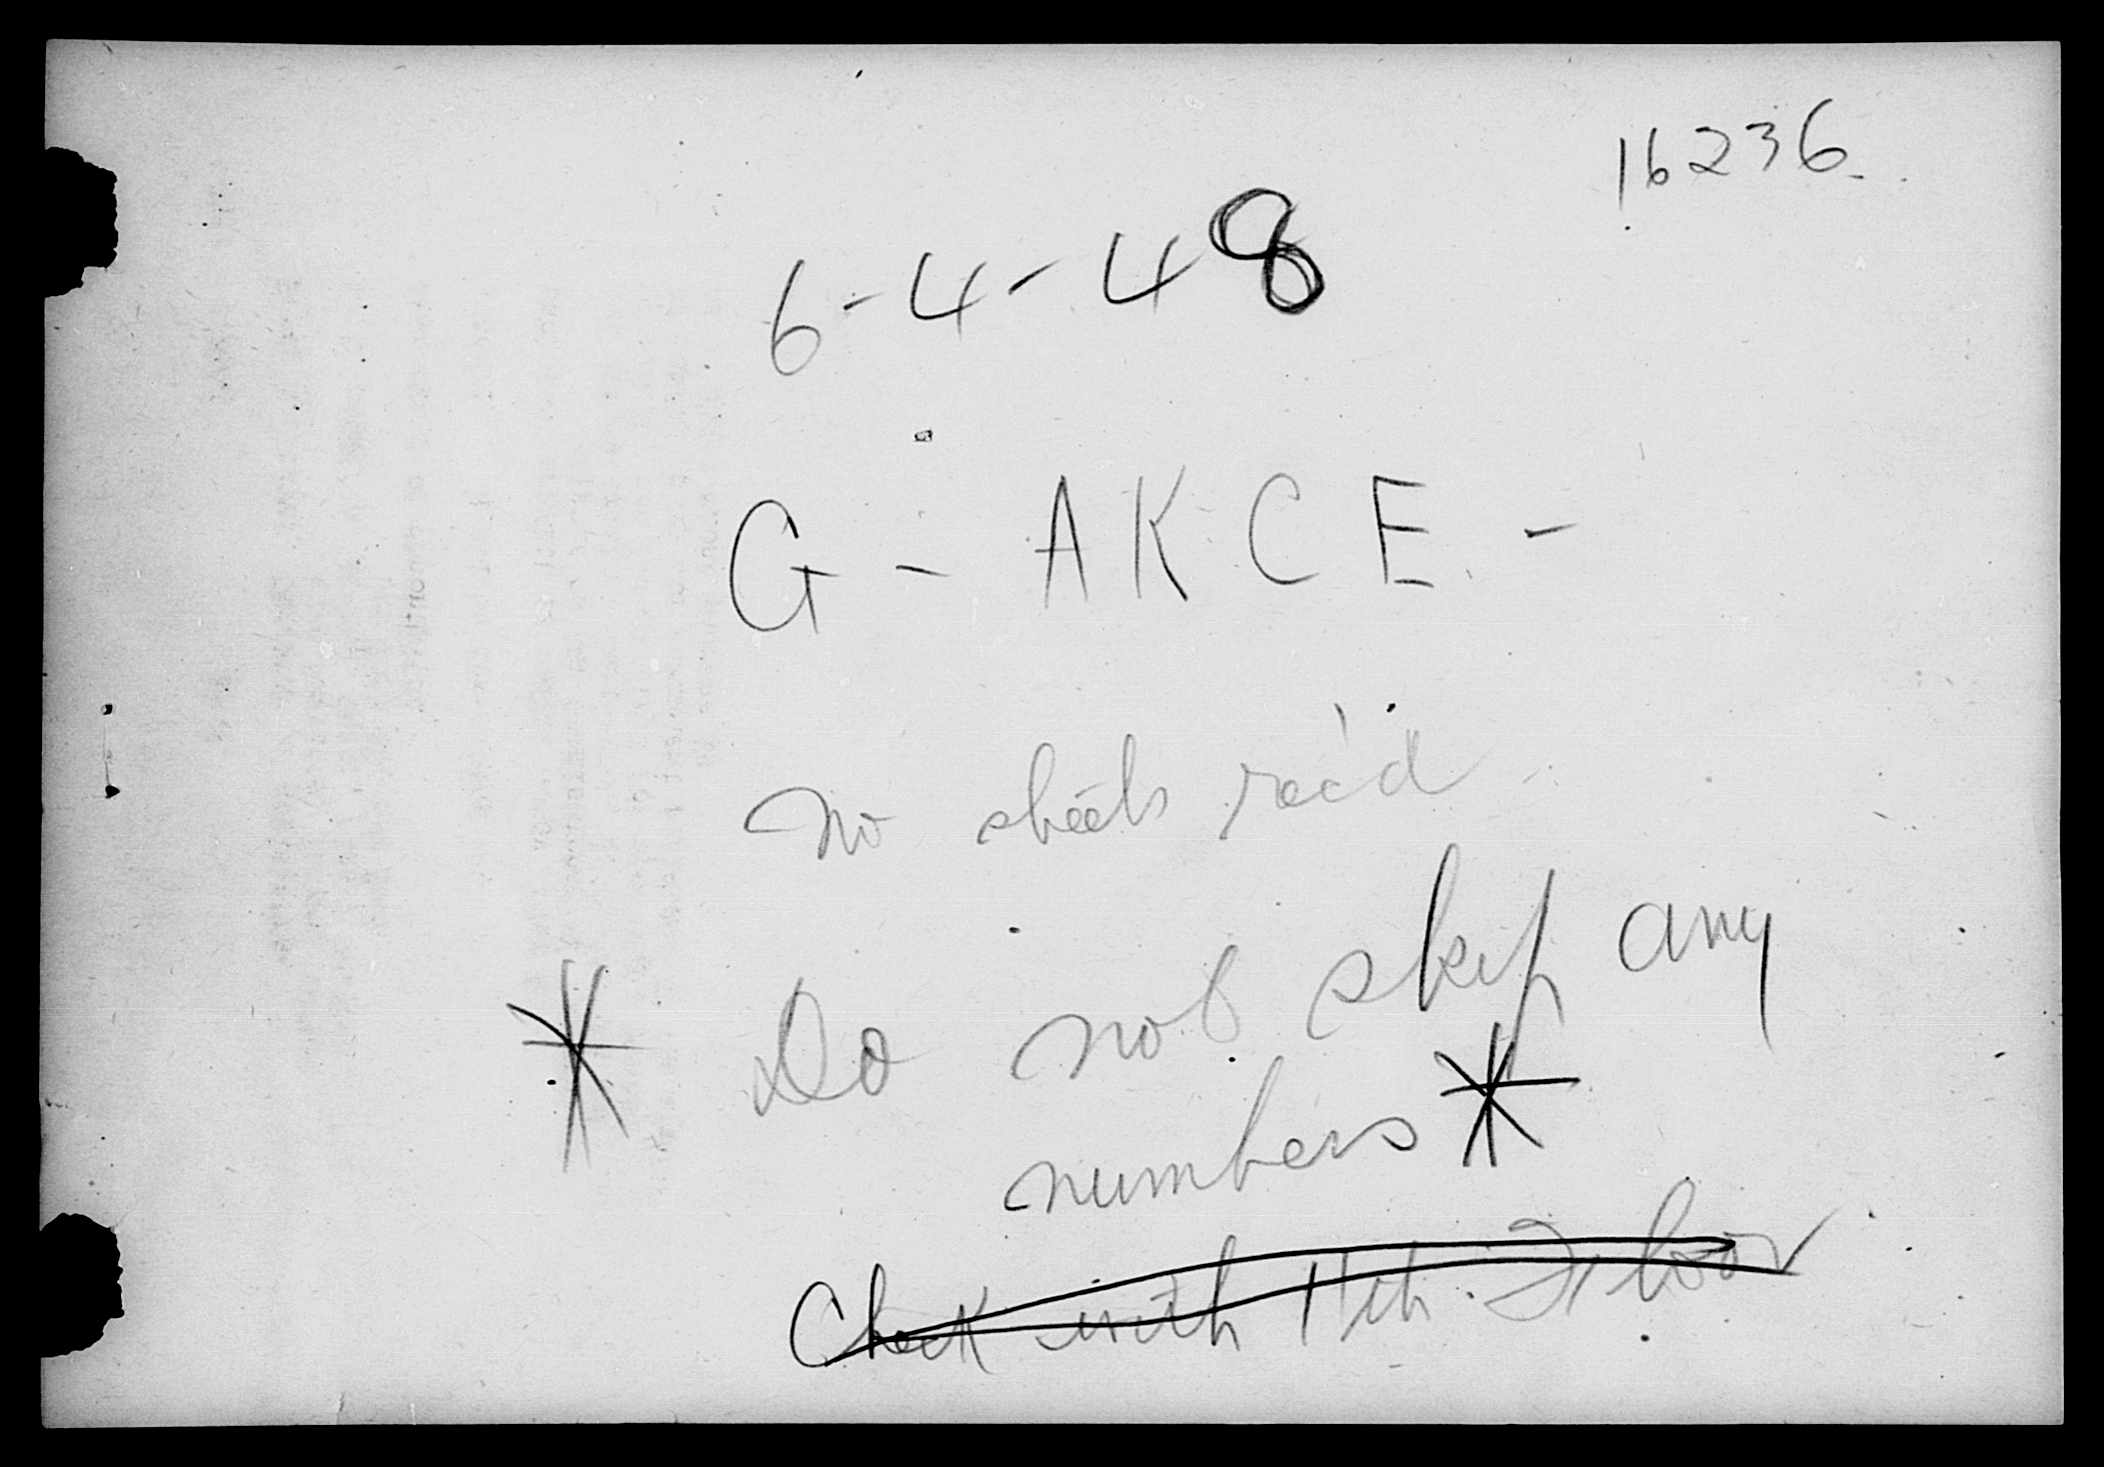 16236
6-4-48
G - AKCE -
no sheets rec'd
* Do not skip any
numbers *
Check with 11th Floor